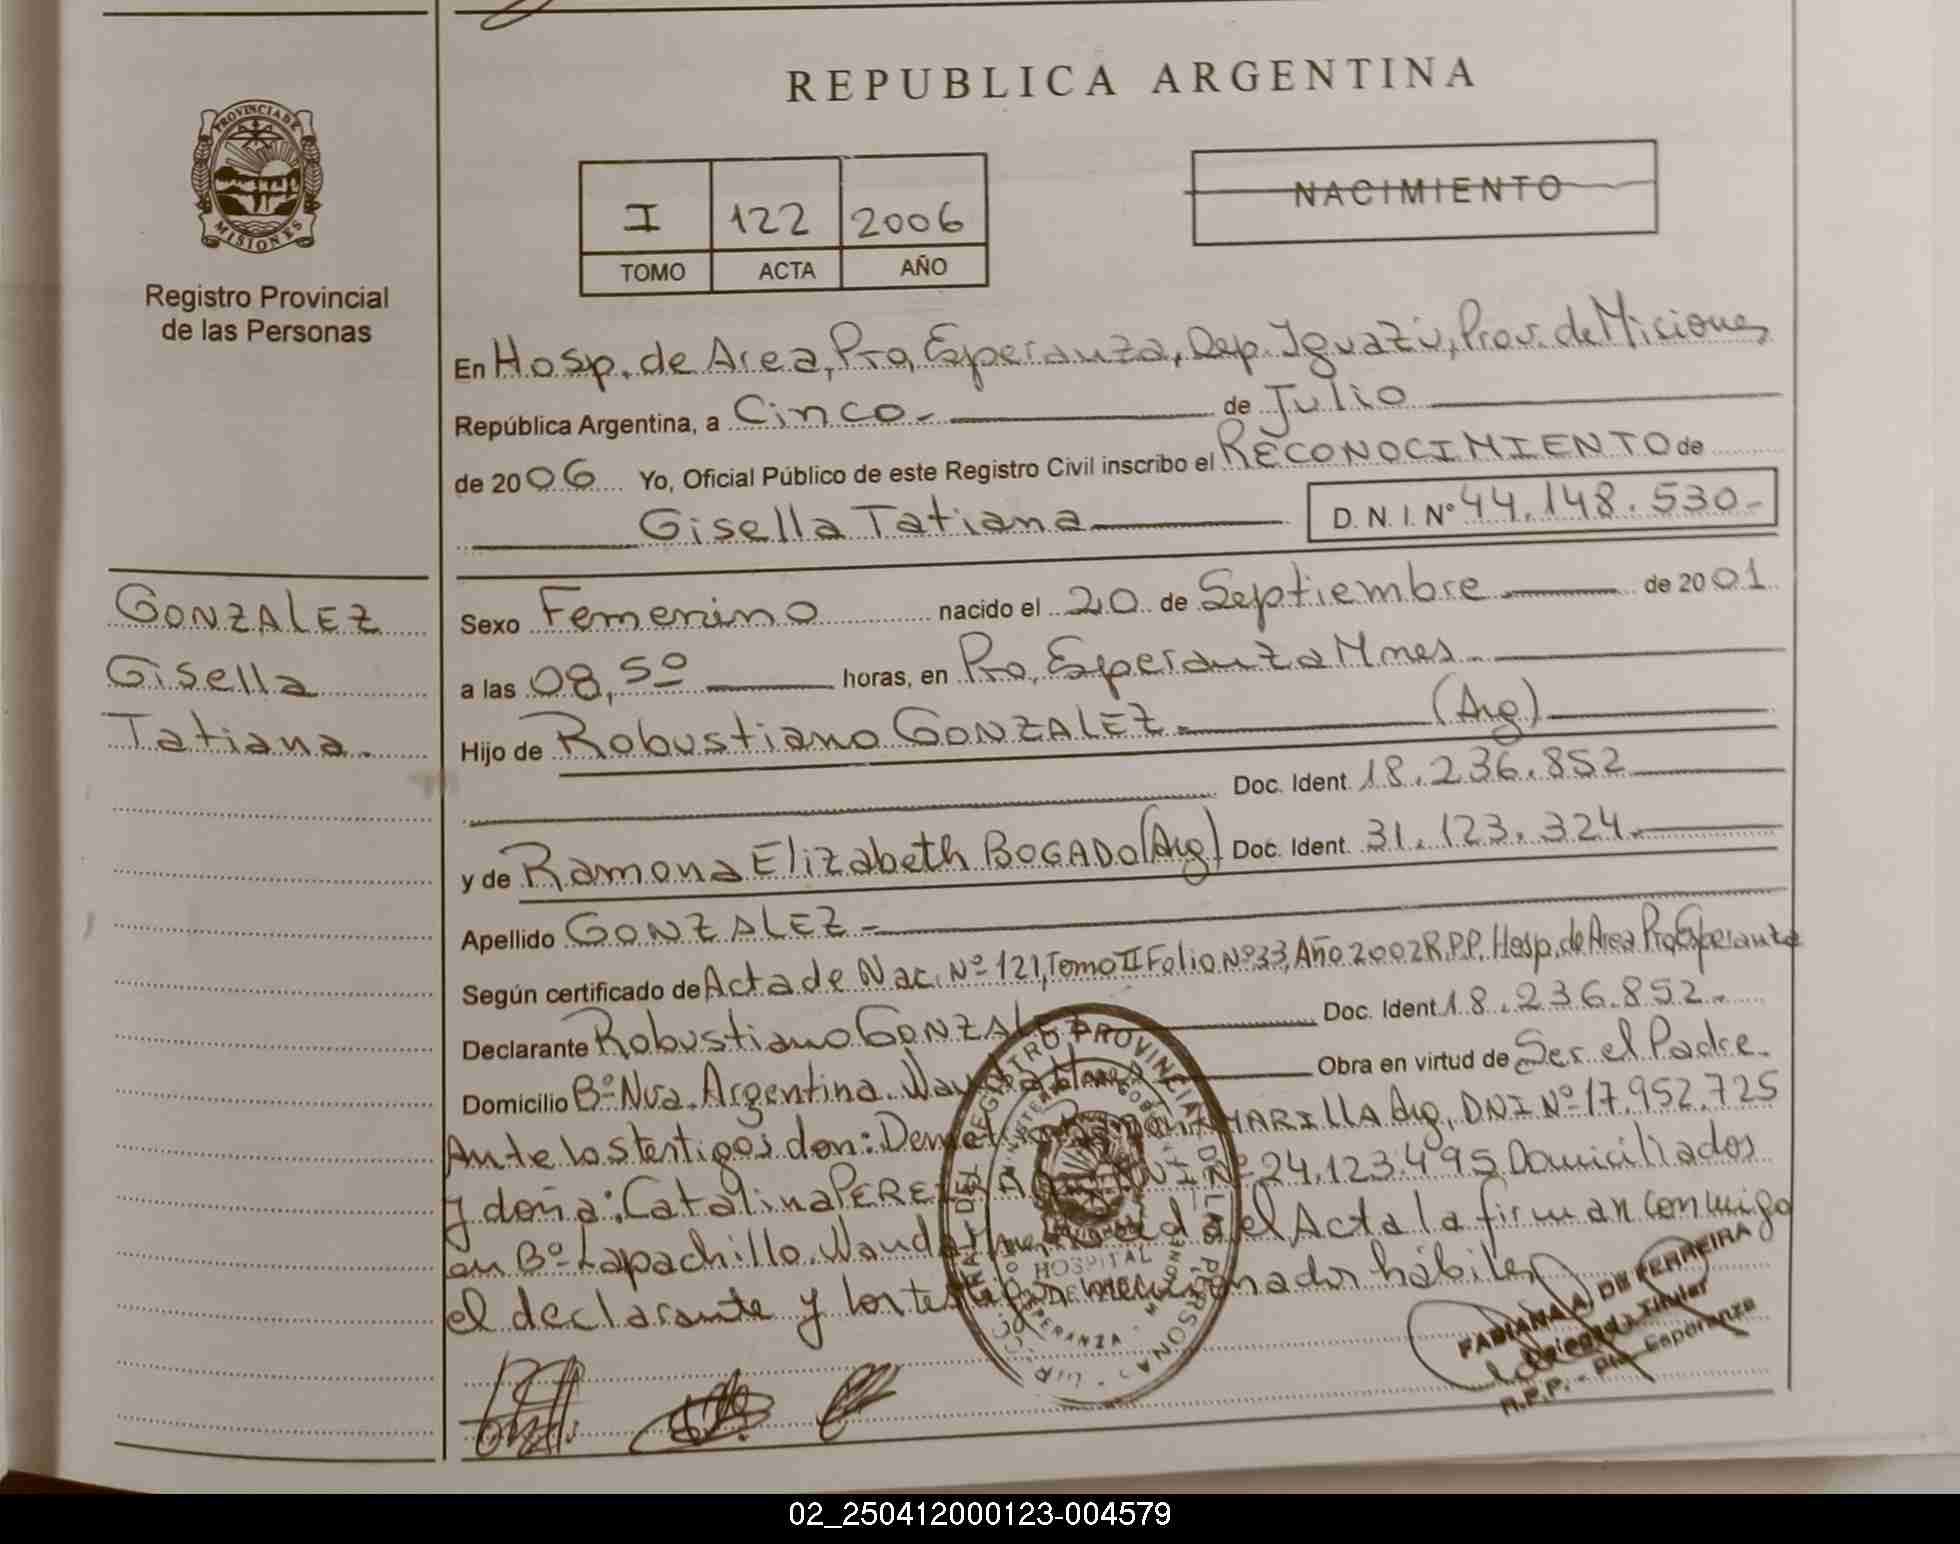 REPUBLICA ARGENTINA
PROVINCIA DE
MISIONES
Registro Provincial
de las Personas
I 122 2006
TOMO ACTA AÑO
NACIMIENTO
En Hosp. de Area, Pto, Esperanza, Dep. Iguazú, Prov. de Miciones
República Argentina, a Cinco.- de Julio
de 2006 Yo, Oficial Público de este Registro Civil inscribo el RECONOCIMIENTO de
Gisella Tatiana D.N.I. Nº 44.148.530-
GONZALEZ
Gisella
Tatiana.
Sexo Femenino nacido el 20 de Septiembre de 2001
a las 08,50 horas, en Pto, Esperanza Mnes.
Hijo de Robustiano GONZALEZ. (Arg)
Doc. Ident. 18.236.852
y de Ramona Elizabeth BOGADO (Arg) Doc. Ident. 31.123.324.
Apellido GONZALEZ-
Según certificado de Acta de Nac. Nº 121, Tomo II Folio Nº 33, Año 2002 R.P.P. Hosp. de Area Pto Esperanza
Declarante Robustiano GONZALEZ Doc. Ident 18.236.852.
Domicilio Bº Nva. Argentina. Obra en virtud de Ser el Padre.
Ante los testigos don: MARILLA Arg, DNI Nº 17.952.725
y doña: Catalina PEREZ DNI Nº 24.123.495 Domiciliados
en Bº Lapachillo. el Acta la firman conmigo
el declarante y los mencionados hábiles
REGISTRO PROVINCIAL DE LAS PERSONAS
HOSPITAL
FABIANA A. DE FERREIRA
Delegada Titular
R.P.P. - Pto. Esperanza
02_250412000123-004579